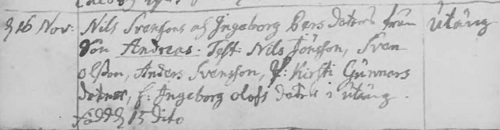 d 16 Nov: Nils Svensons och Ingeborg Bers doters från Utäng
Son Andreas. Test: Nils Jönsson, Sven
olsson, Anders Svensson, h: Kirsti Gunnars
doter, h: Ingeborg olofs doter i Utäng.
född d 15 dito